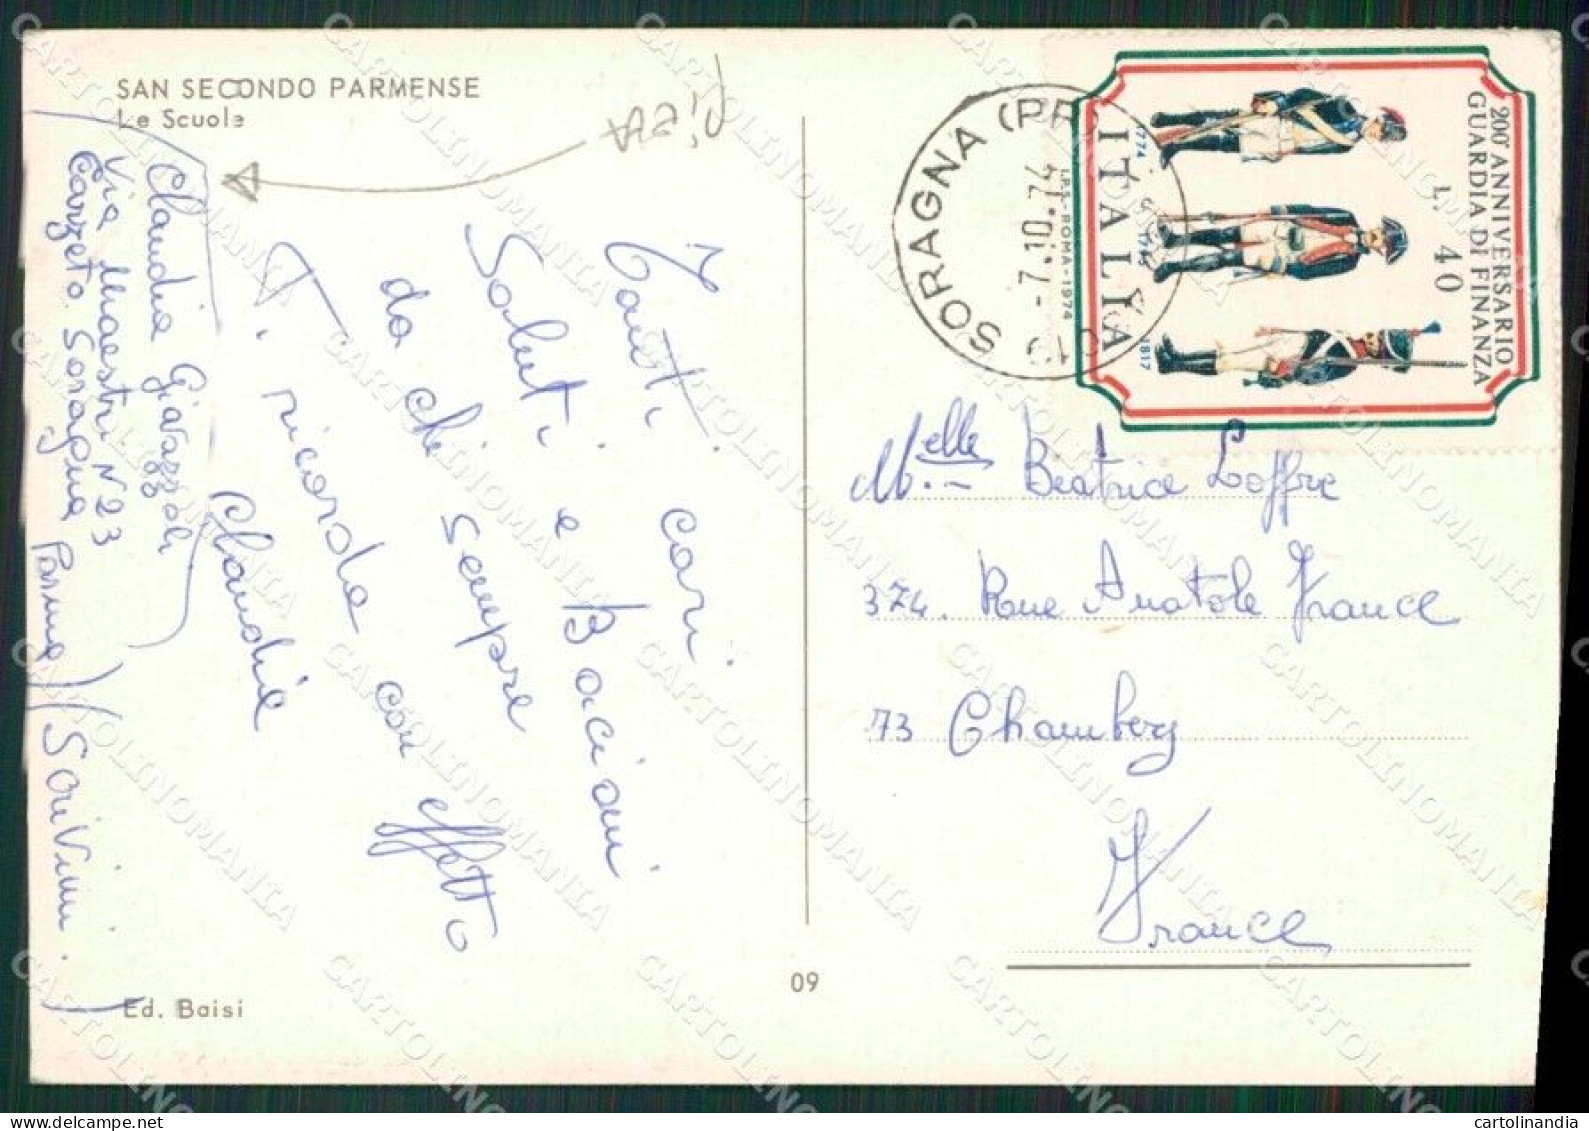 SAN SECONDO PARMENSE
Le Scuole
Tanti cari
Saluti e Bacioni
da chi sempre
Ti ricorda con affetto
Claudia
Claudia Giavazzoli
Via Maestri N 23
Carzeto Soragna Parma
Ed. Baisi
09
SORAGNA (PR)
-7.10.74
200° ANNIVERSARIO
GUARDIA DI FINANZA
L. 40
ITALIA
1774
1795
1817
I.P.S.-ROMA-1974
Melle Beatrice Loffre
374. Rue Anatole France
73 Chambery
France
CARTOLINOMANIA
cartolinandia